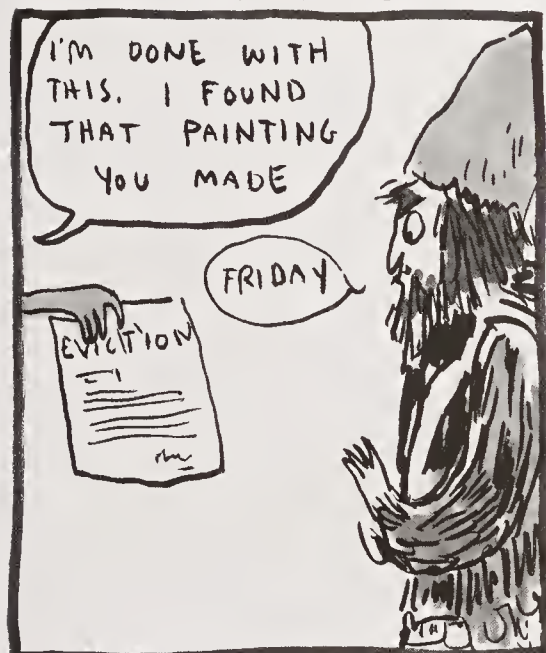 I'M DONE WITH
THIS. I FOUND
THAT PAINTING
YOU MADE
FRIDAY
EVICTION